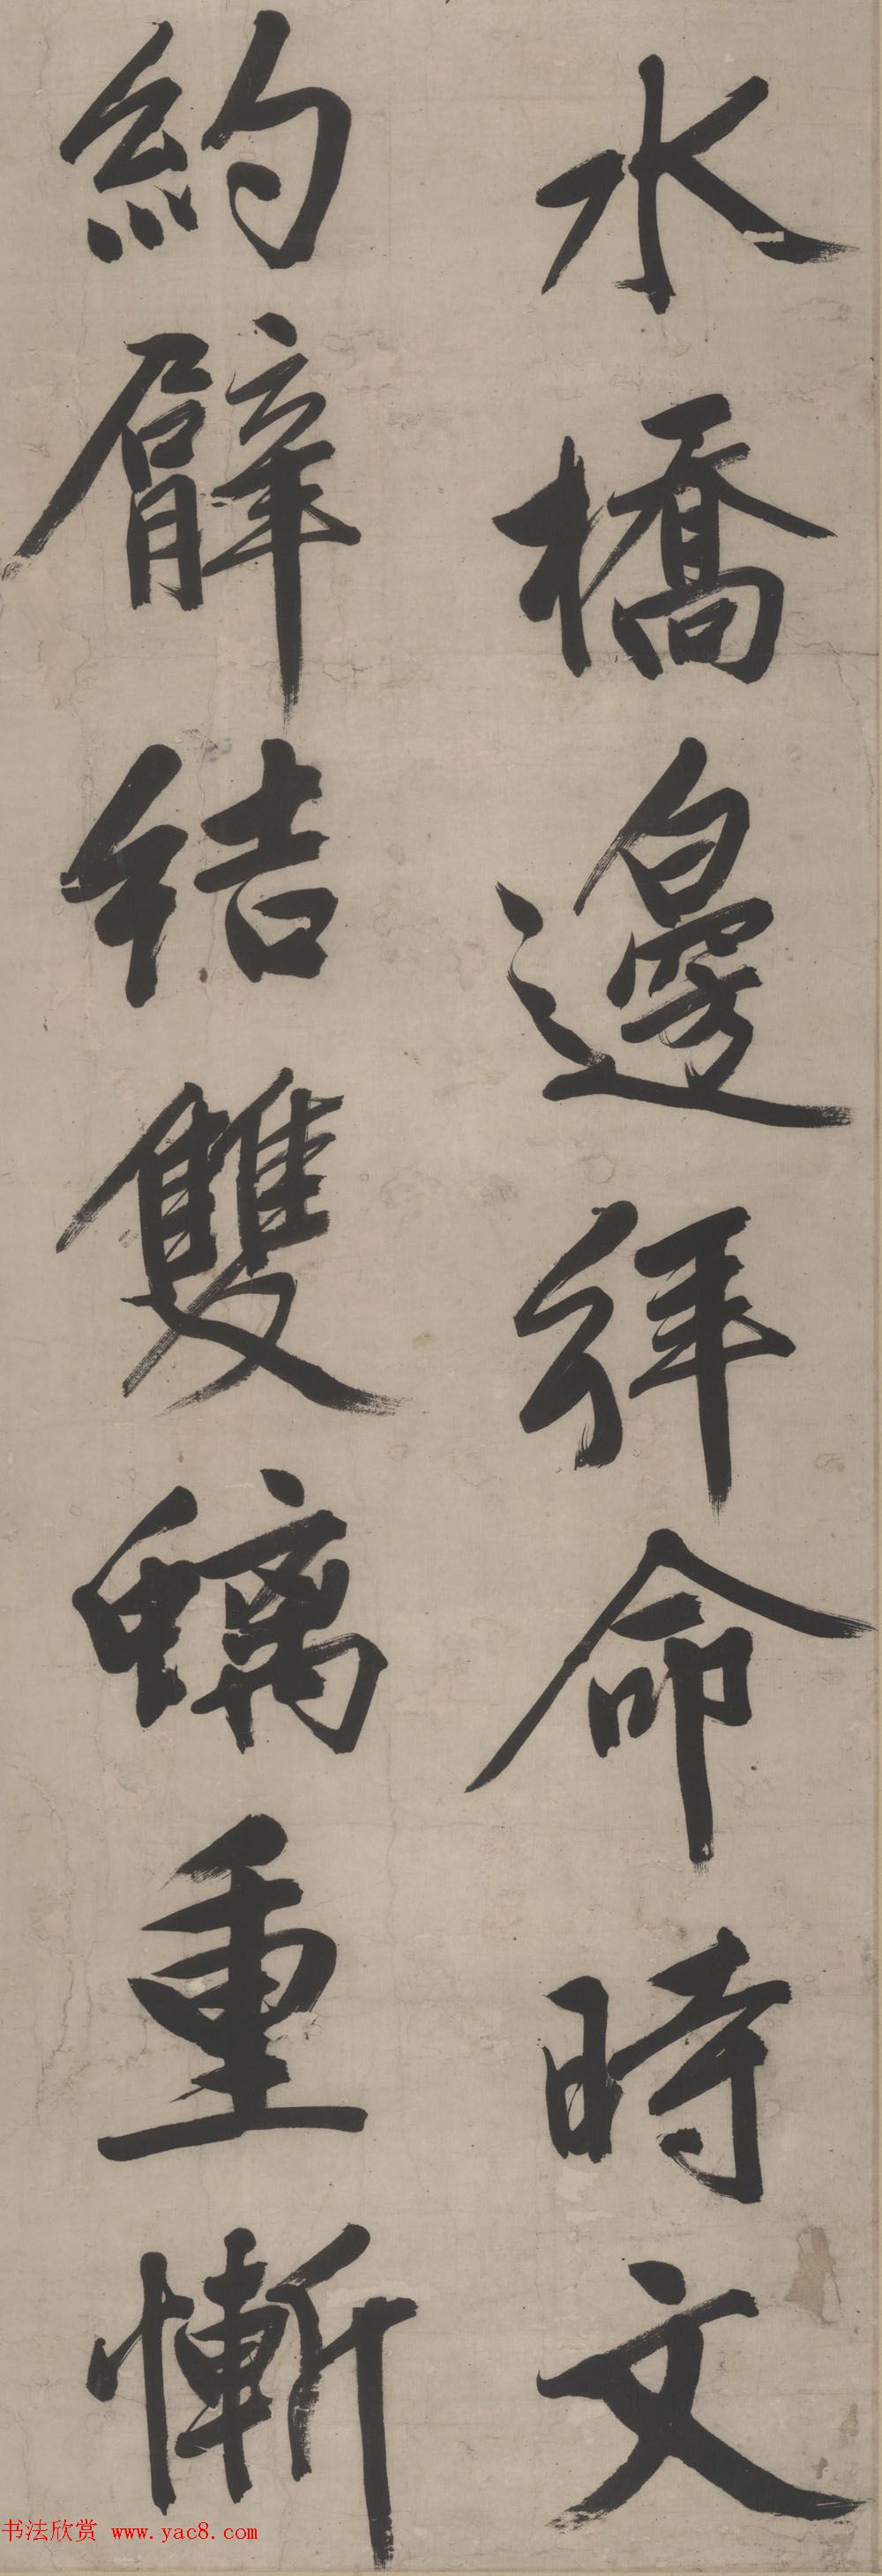 水橋邊拜命時文
約臂結雙螭重慚
书法欣赏 www.yac8.com